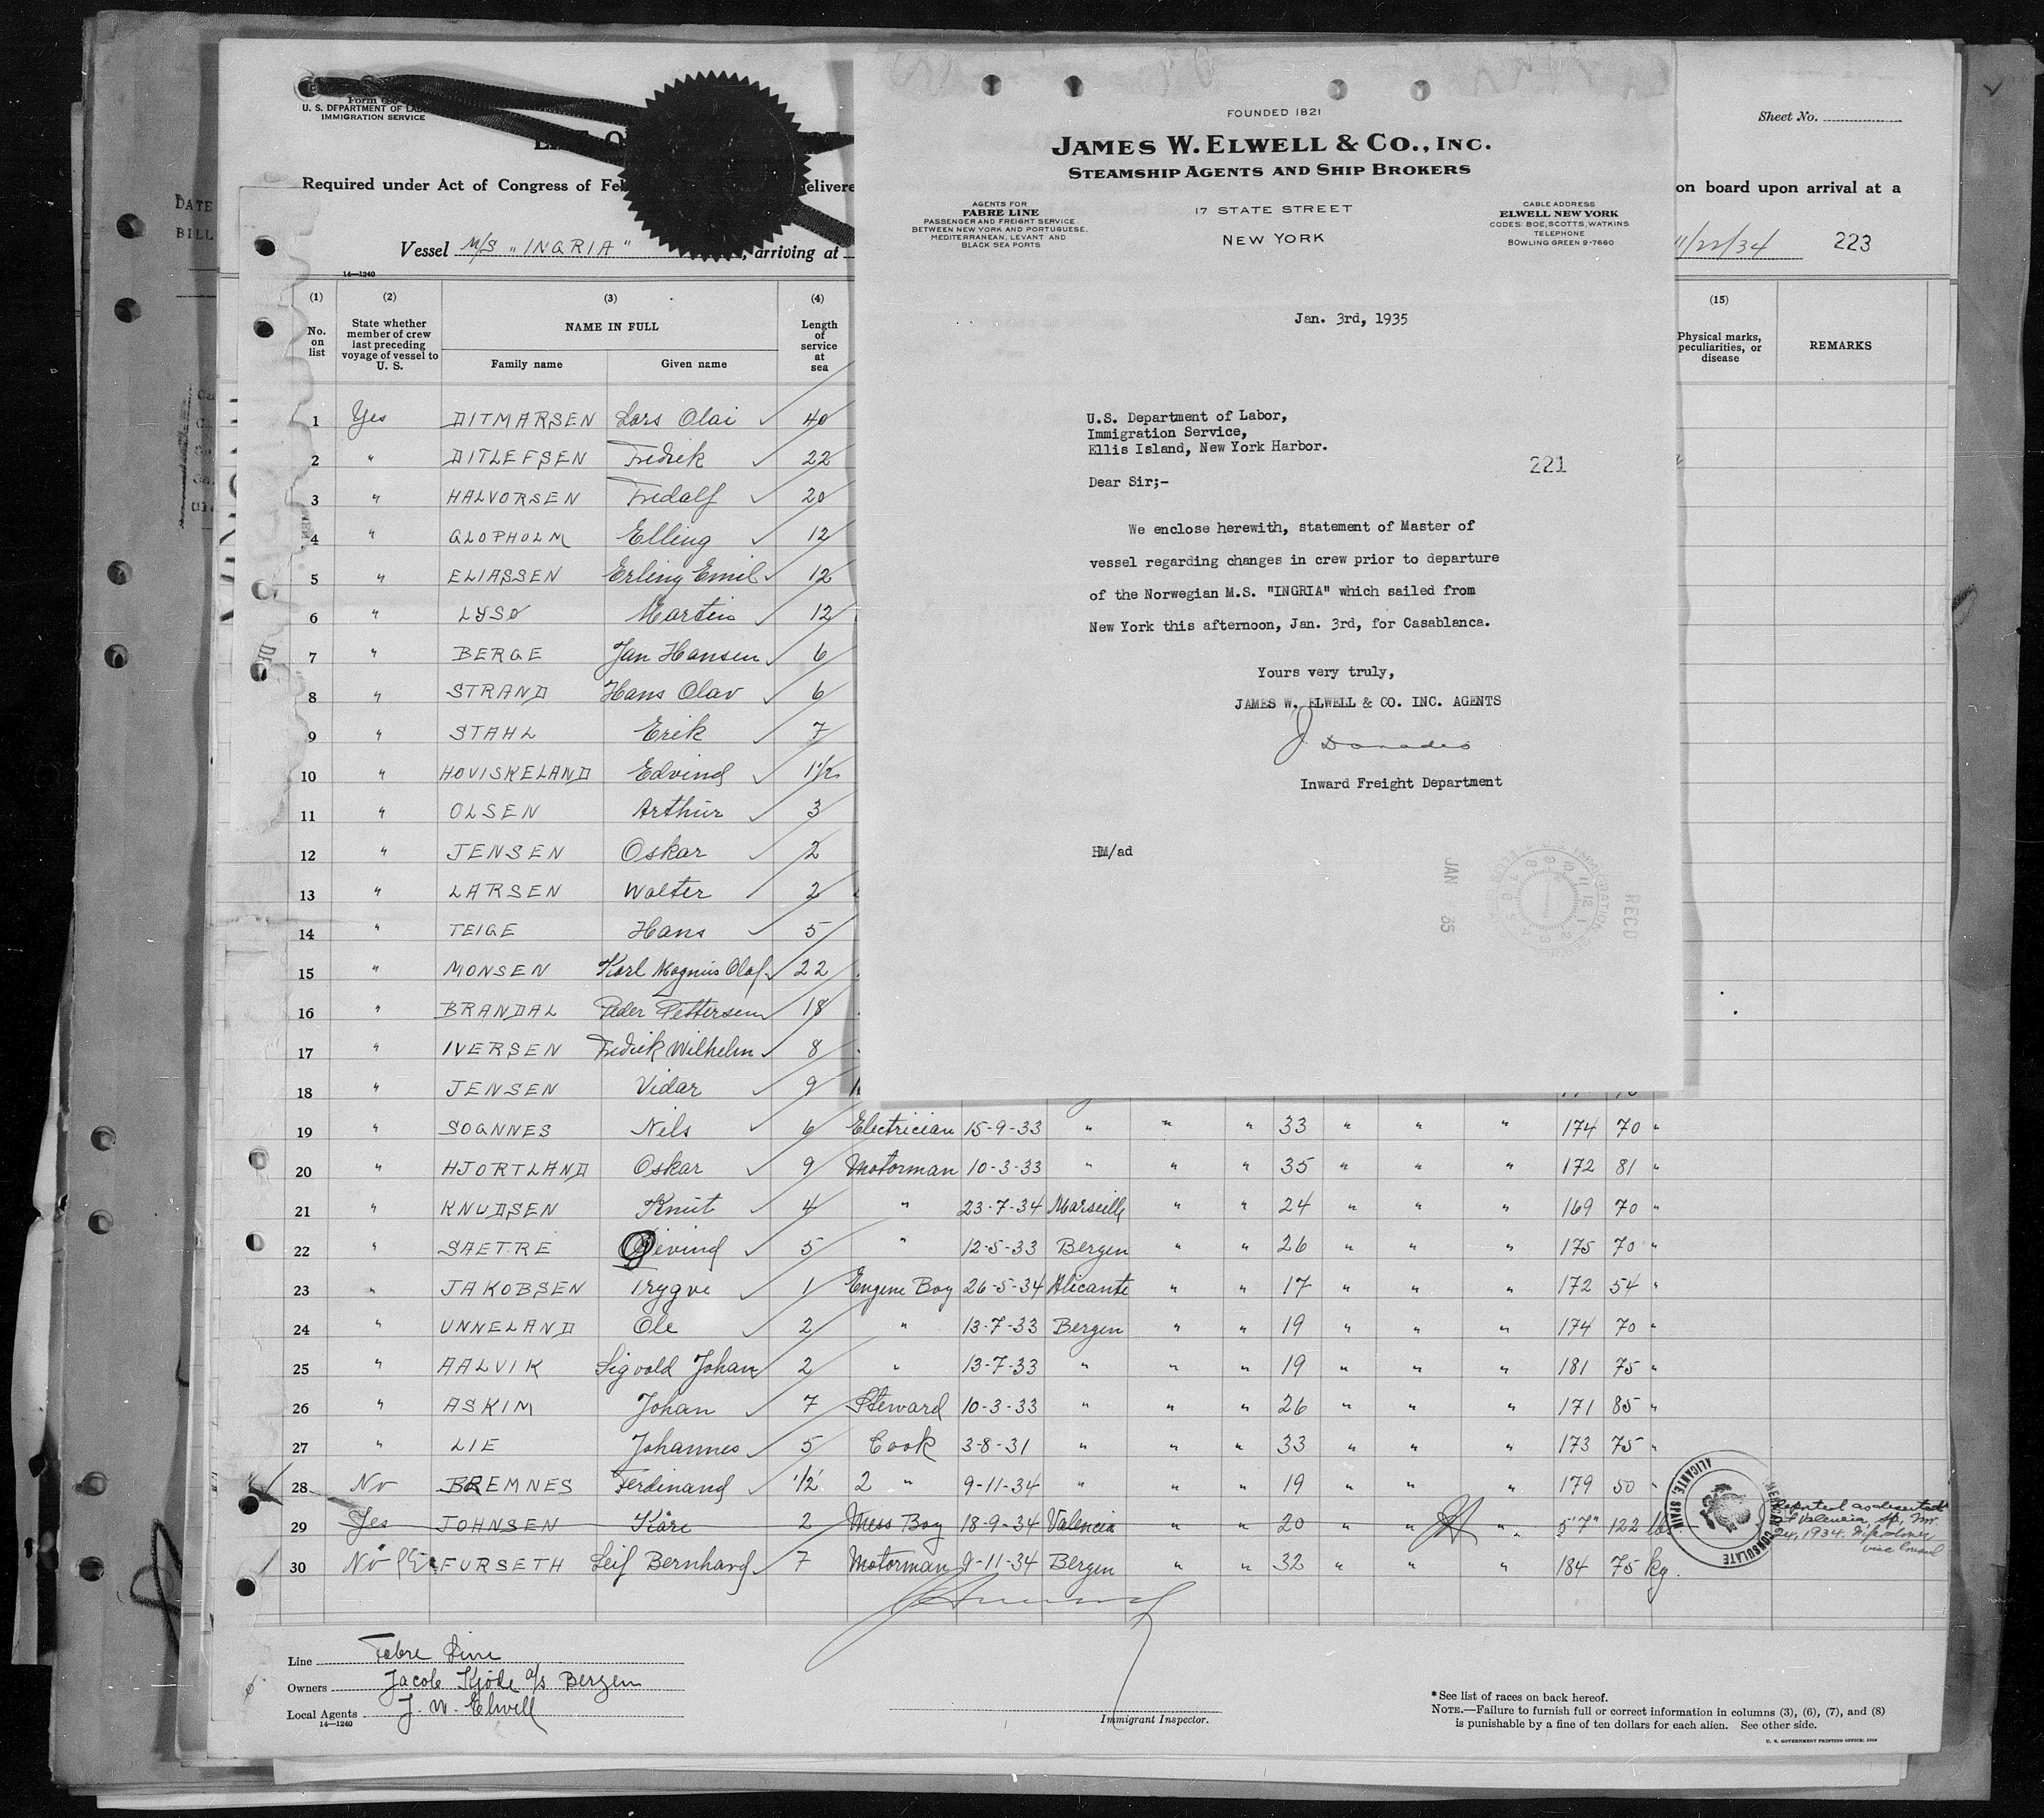 Form 680
U. S. DEPARTMENT OF LAB
IMMIGRATION SERVICE
Sheet No.
Required under Act of Congress of Fe
elivere
on board upon arrival at a
Vessel M/S "INGRIA" , arriving at
11/22/34 223
14—1240
DATE
BILL
(1) (2) (3) (4) (15)
No. on list
State whether member of crew last preceding voyage of vessel to U. S.
NAME IN FULL
Family name Given name
Length of service at sea
Physical marks, peculiarities, or disease
REMARKS
1 Yes DITMARSEN Lars Olai 40
2 " DITLEFSEN Fredrek 22
3 " HALVORSEN Fredalf 20
4 " GLOPHOLM Elling 12
5 " ELIASSEN Erling Emil 12
6 " LYSØ Martin 12
7 " BERGE Jan Hansen 6
8 " STRAND Hans Olav 6
9 " STAHL Erik 7
10 " HOVISKELAND Edvind 1 1/2
11 " OLSEN Arthur 3
12 " JENSEN Oskar 2
13 " LARSEN Walter 2
14 " TEIGE Hans 5
15 " MONSEN Karl Magnus Olaf 22
16 " BRANDAL Peder Pettersen 18
17 " IVERSEN Fredrik Wilhelm 8
18 " JENSEN Vidar 9
19 " SOGNNES Nils 6 Electrician 15-9-33 " " " 33 " " " 174 70 "
20 " HJORTLAND Oskar 9 Motorman 10-3-33 " " " 35 " " " 172 81 "
21 " KNUDSEN Knut 4 " 23-7-34 Marseille " " 24 " " " 169 70 "
22 " SAETRE Øivind 5 " 12-5-33 Bergen " " 26 " " " 175 70 "
23 " JAKOBSEN Trygve 1 Engene Boy 26-5-34 Alicante " " 17 " " " 172 54 "
24 " UNNELAND Ole 2 " 13-7-33 Bergen " " 19 " " " 174 70 "
25 " AALVIK Sigvold Johan 2 " 13-7-33 " " " 19 " " " 181 75 "
26 " ASKIM Johan 7 Steward 10-3-33 " " " 26 " " " 171 85 "
27 " LIE Johannes 5 Cook 3-8-31 " " " 33 " " " 173 75 "
28 No BREMNES Ferdinand 1/2 2 " 9-11-34 " " " 19 " " " 179 50 "
29 Yes JOHNSEN Kåre 2 Mess Boy 18-9-34 Valencia " " 20 " " " 5'7" 122 lbs
30 No FURSETH Leif Bernhard 7 Motorman 9-11-34 Bergen " " 32 " " " 184 75 kg.
Reported as deserted
at Valencia, Sp., Nov.
24, 1934.
vice consul
AMERICAN CONSULATE
ALICANTE, SPAIN
Line Fabre Line
Owners Jacob Kjøde a/s Bergen
Local Agents J. W. Elwell
14—1240
Immigrant Inspector.
*See list of races on back hereof.
NOTE.—Failure to furnish full or correct information in columns (3), (6), (7), and (8)
is punishable by a fine of ten dollars for each alien. See other side.
U. S. GOVERNMENT PRINTING OFFICE: 1930
FOUNDED 1821
JAMES W. ELWELL & CO., INC.
STEAMSHIP AGENTS AND SHIP BROKERS
AGENTS FOR
FABRE LINE
PASSENGER AND FREIGHT SERVICE
BETWEEN NEW YORK AND PORTUGUESE,
MEDITERRANEAN, LEVANT AND
BLACK SEA PORTS
17 STATE STREET
NEW YORK
CABLE ADDRESS
ELWELL NEW YORK
CODES: BOE, SCOTTS, WATKINS
TELEPHONE
BOWLING GREEN 9-7660
Jan. 3rd, 1935
U.S. Department of Labor,
Immigration Service,
Ellis Island, New York Harbor.
221
Dear Sir;-
We enclose herewith, statement of Master of
vessel regarding changes in crew prior to departure
of the Norwegian M.S. "INGRIA" which sailed from
New York this afternoon, Jan. 3rd, for Casablanca.
Yours very truly,
JAMES W. ELWELL & CO. INC. AGENTS
J Donadeo
Inward Freight Department
HM/ad
JAN 35
RECD